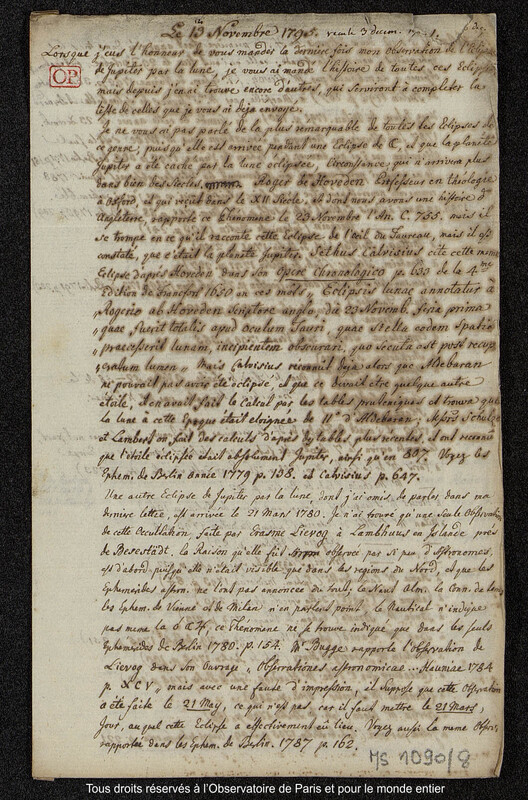 Le 13 Novembre 1795. recule 3 decem.
Lorsque j'eus l'honneur de vous mander la derniere fois mon observation de l'Eclipse
de Jupiter par la lune, je vous ai mandé l'histoire de toutes ces Eclipses
OP
mais depuis j'en ai trouvé encore d'autres, qui serviront à completter la
liste de celles que je vous ai deja envoyé.
Je ne vous ai pas parlé de la plus remarquable de toutes les Eclipses de
ce genre, puisqu'elle est arrivée pendant une Eclipse de ☾, et que la planéte
Jupiter a été caché par la lune eclipsée, Circonstance que n'arrivera plus
dans bien des Siecles, Roger de Hoveden Professeur en théologie
à Oxford, et qui veçut dans le XII Siecle, et dont nous avons une histoire d'
Angleterre, rapporte ce Phénomene le 23 Novembre l'An. C. 755. mais il
se trompe en ce qu'il raconte cette Eclipse de l'oeil du Taureau, mais il est
constaté, que c'était la planéte Jupiter. Sethus Calvisius cite cette meme
Eclipse d'après Hoveden dans son Opere Chronologico p. 630 de la 4me
Edition de Francfort 1650 en ces mots „ Eclipsis lunae annotatur à
„ Rogerio ab Hoveden Scriptore anglo, die 23 Novemb. feria prima
„ quae fuerit totalis apud oculum Tauri, quae stella eodem spatio
„ praecesserit lunam, incipientem obscurari, quo secuta est post recup
„ eratum lumen „ Mais Calvisius reconnut deja alors que Aldebaran
ne pouvait pas avoir été eclipsé, et que ce devait etre quelque autre
étoile, il en avait fait le Calcul par les tables pruteniques et trouva que
la lune à cette Epoque était eloignée de 11° d'Aldebaran; Messrs Schulze
et Lambert on fait des calculs d'après des tables plus recentes, et ont reconnu
que l'étoile eclipsée était absolument Jupiter, ainsi qu'en 807. Voyez les
Ephem. de Berlin année 1779 p. 138. et Calvisius p. 647.
Une autre Eclipse de Jupiter par la lune, dont j'ai omis de parler dans ma
derniere lettre, est arrivée le 21 Mars 1780. Je n'ai trouvé qu'une seule Observation
de cette Occultation, faite par Erasme Lievog à Lambhuus en Islande près
de Besestadt. la Raison qu'elle fut observée par si peu d'astronomes,
est d'abord puisqu'elle n'était visible que dans les regions du Nord, et que les
Ephemérides astron. ne l'ont pas annoncée du tout; le Naut. Alm. la Conn. de tems
les Ephem. de Vienne et de Milan n'en parlent point. le Nautical n'indique
pas meme la ☌ ☾ ♃, ce Phénomene ne se trouve indiqué que dans les seuls
Ephemerides de Berlin 1780. p. 154. Mr Bugge rapporte l'observation de
Lievog dans son Ouvrage „ Observationes astronomicae ... Hauniae 1784
p. XCV „ mais avec une faute d'impression, il suppose que cette Observation
a été faite le 21 May, ce qui n'est pas, car il faut mettre le 21 Mars,
Jour, auquel cette Eclipse a effectivement eu lieu. Voyez aussi la meme Observ.
rapportée dans les Ephem. de Berlin. 1787 p. 162.
MS 1090/8
Tous droits réservés à l'Observatoire de Paris et pour le monde entier